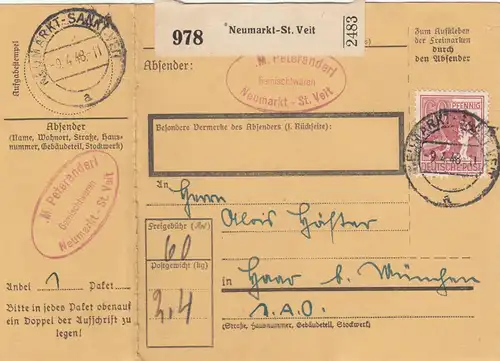 NEUMARKT-SANKT VEIT
-9.4.48.-11
a
Aufgabestempel
Absender
(Name, Wohnort, Straße, Haus-
nummer, Gebäudeteil, Stockwerk)
M. Peteranderl
Gemischtwaren
Neumarkt - St. Veit
Anbei 1 Paket
Bitte in jedes Paket obenauf
ein Doppel der Aufschrift zu
legen!
978
Neumarkt-St. Veit
2483
Absender:
M. Peteranderl
Gemischtwaren
Neumarkt - St. Veit
Besondere Vermerke des Absenders (s. Rückseite):
Zum Aufkleben
der Freimarken
durch
den Absender
PFENNIG
DEUTSCHE POST
NEUMARKT-SANKT VEIT
-9.4.48.-11
a
An Herrn
Alois Höster
Freigebühr (RM)
60
Postgewicht (kg)
2,4
in Haar b. München
v.A.O.
(Straße, Hausnummer, Gebäudeteil, Stockwerk)